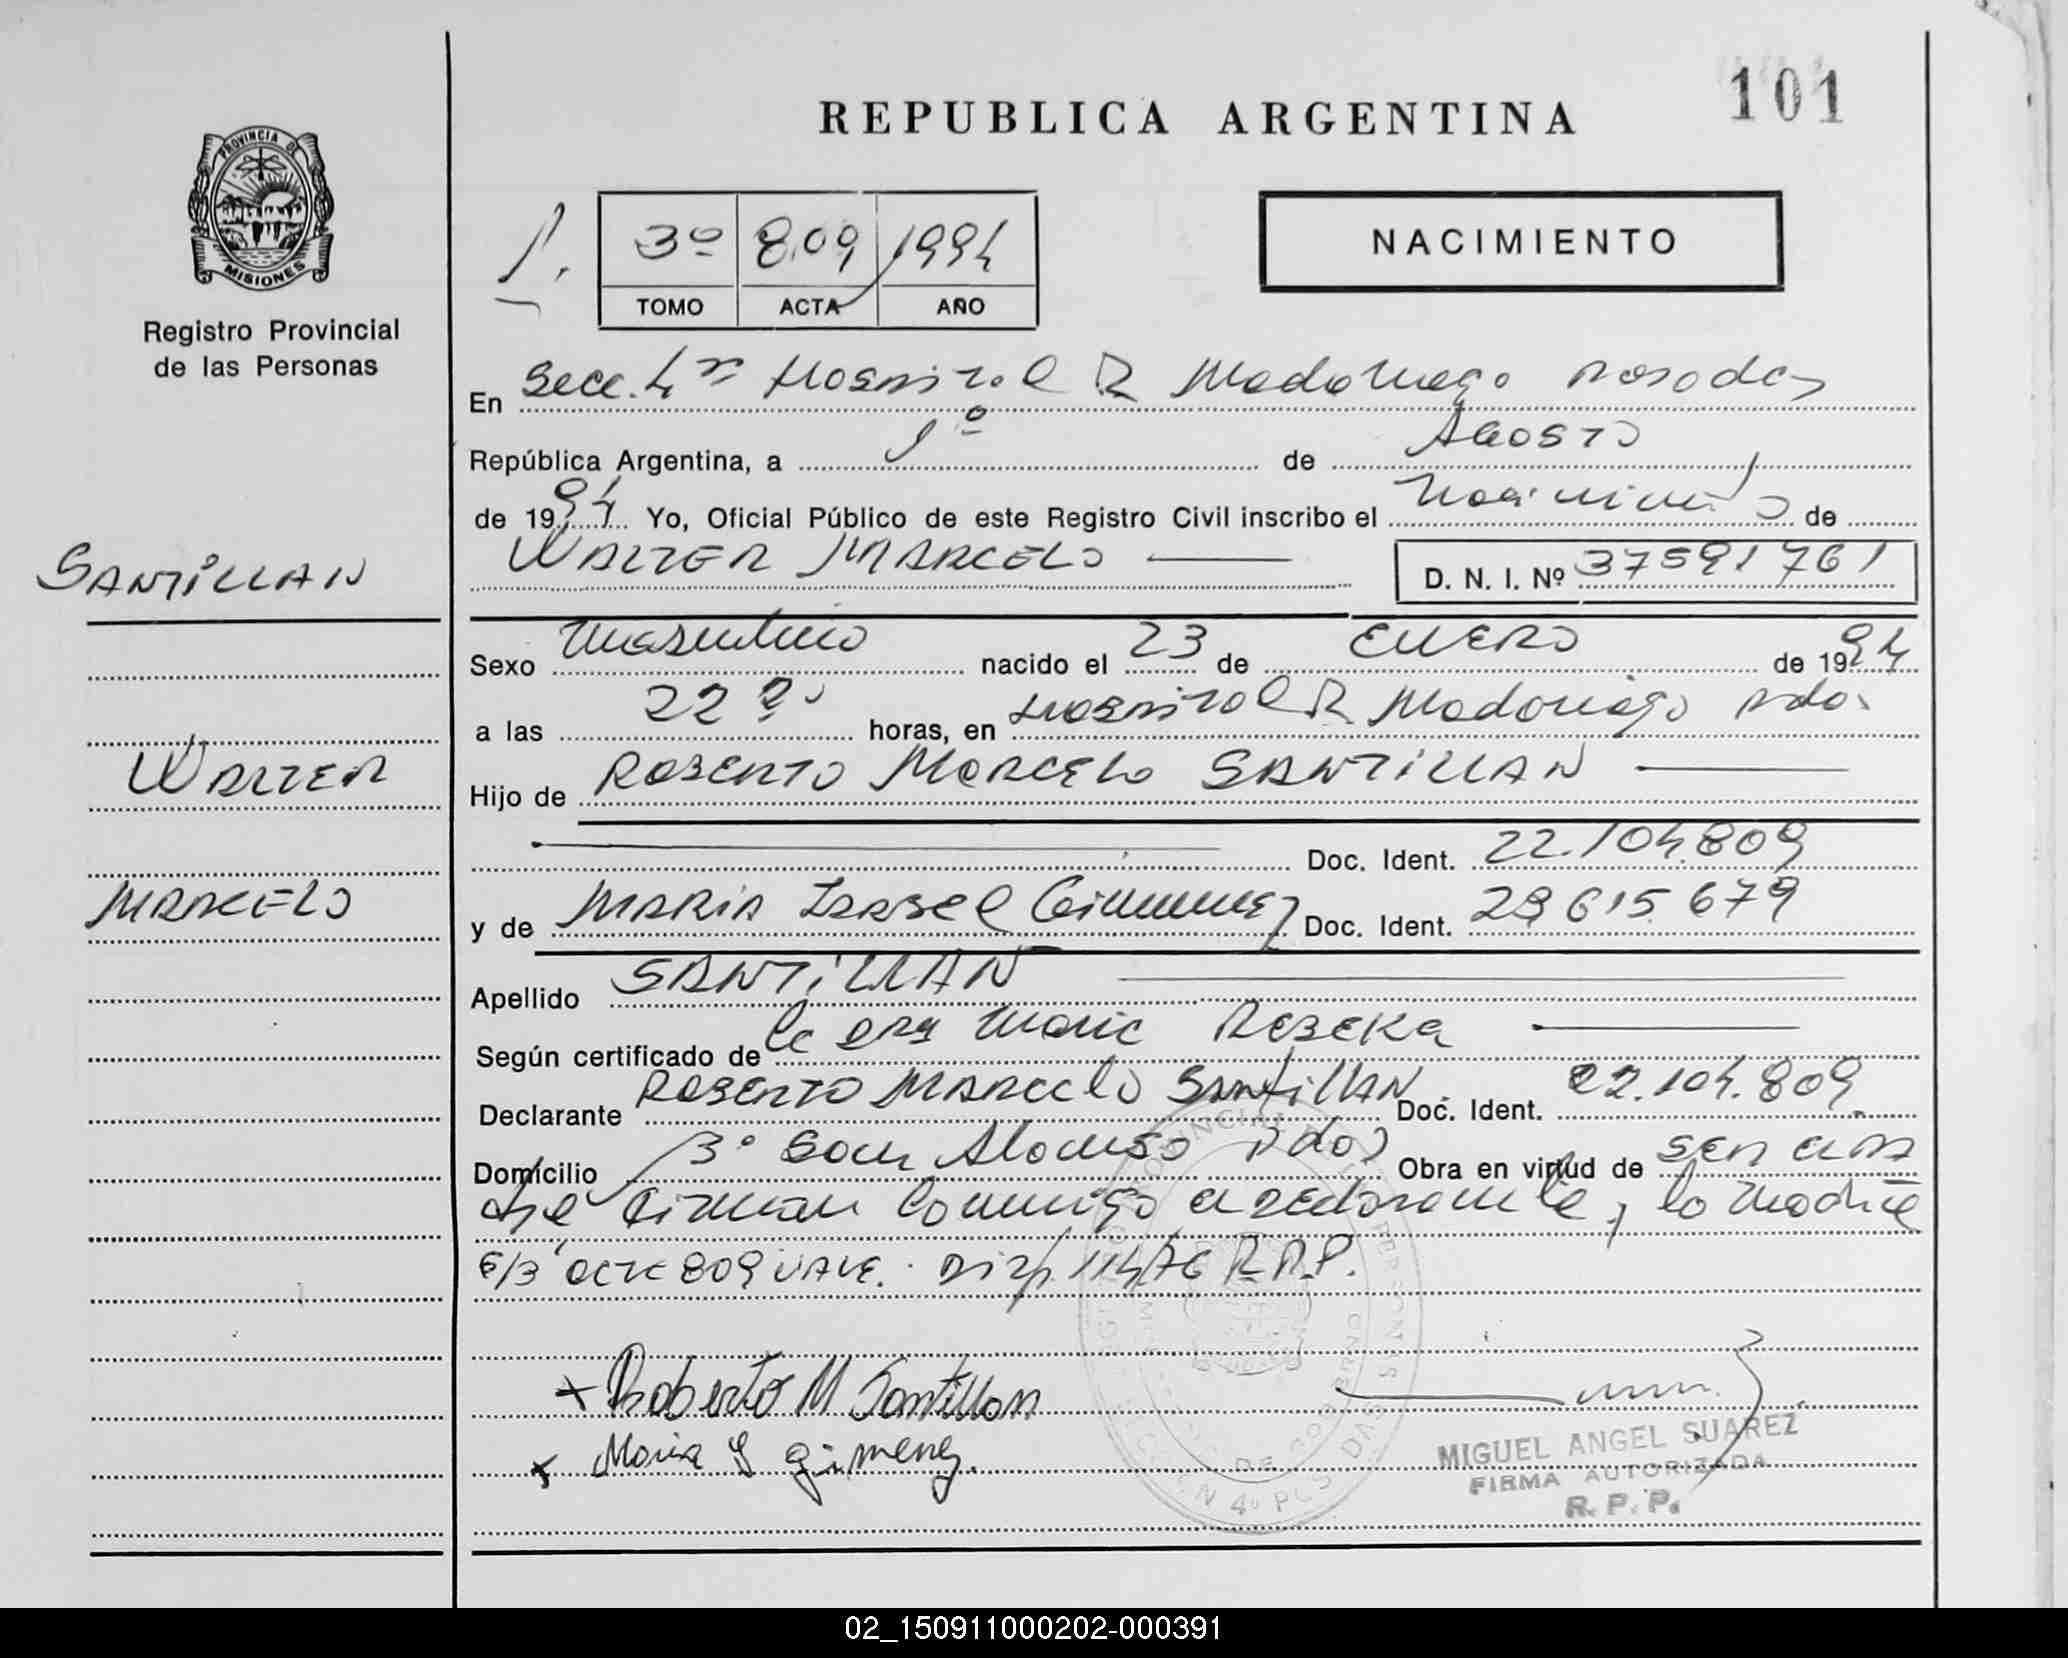 101
REPUBLICA ARGENTINA
PROVINCIA DE
MISIONES
Registro Provincial
de las Personas
3º 809 1994
TOMO ACTA AÑO
NACIMIENTO
En Secc. 4ta Hospital R Madariaga Posadas
República Argentina, a 1º de Agosto
de 1994 Yo, Oficial Público de este Registro Civil inscribo el Nacimiento de
WALTER MARCELO D. N. I. Nº 37591761
SANTILLAN
Sexo Masculino nacido el 23 de ENERO de 1994
a las 22 horas, en Hospital R Madariaga Pdas
WALTER
Hijo de ROBERTO MARCELO SANTILLAN
Doc. Ident. 22.104.809
MARCELO
y de MARIA ISABEL Gimenez Doc. Ident. 23.615.679
Apellido SANTILLAN
Según certificado de la Dra Maria REBEKA
Declarante ROBERTO MARCELO SANTILLAN Doc. Ident. 22.104.809
Domicilio San Alonso Pdas Obra en virtud de ser
Firman Conmigo el declarante y la Madre
809 VALE. Disp. 114/76 R.P.P.
x Roberto M Santillan
x Maria I gimenez
MIGUEL ANGEL SUAREZ
FIRMA AUTORIZADA
R. P. P.
02_150911000202-000391